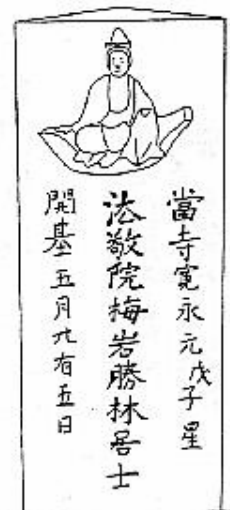 當寺寛永元戊子星
法敬院梅岩勝林居士
開基五月九有五日